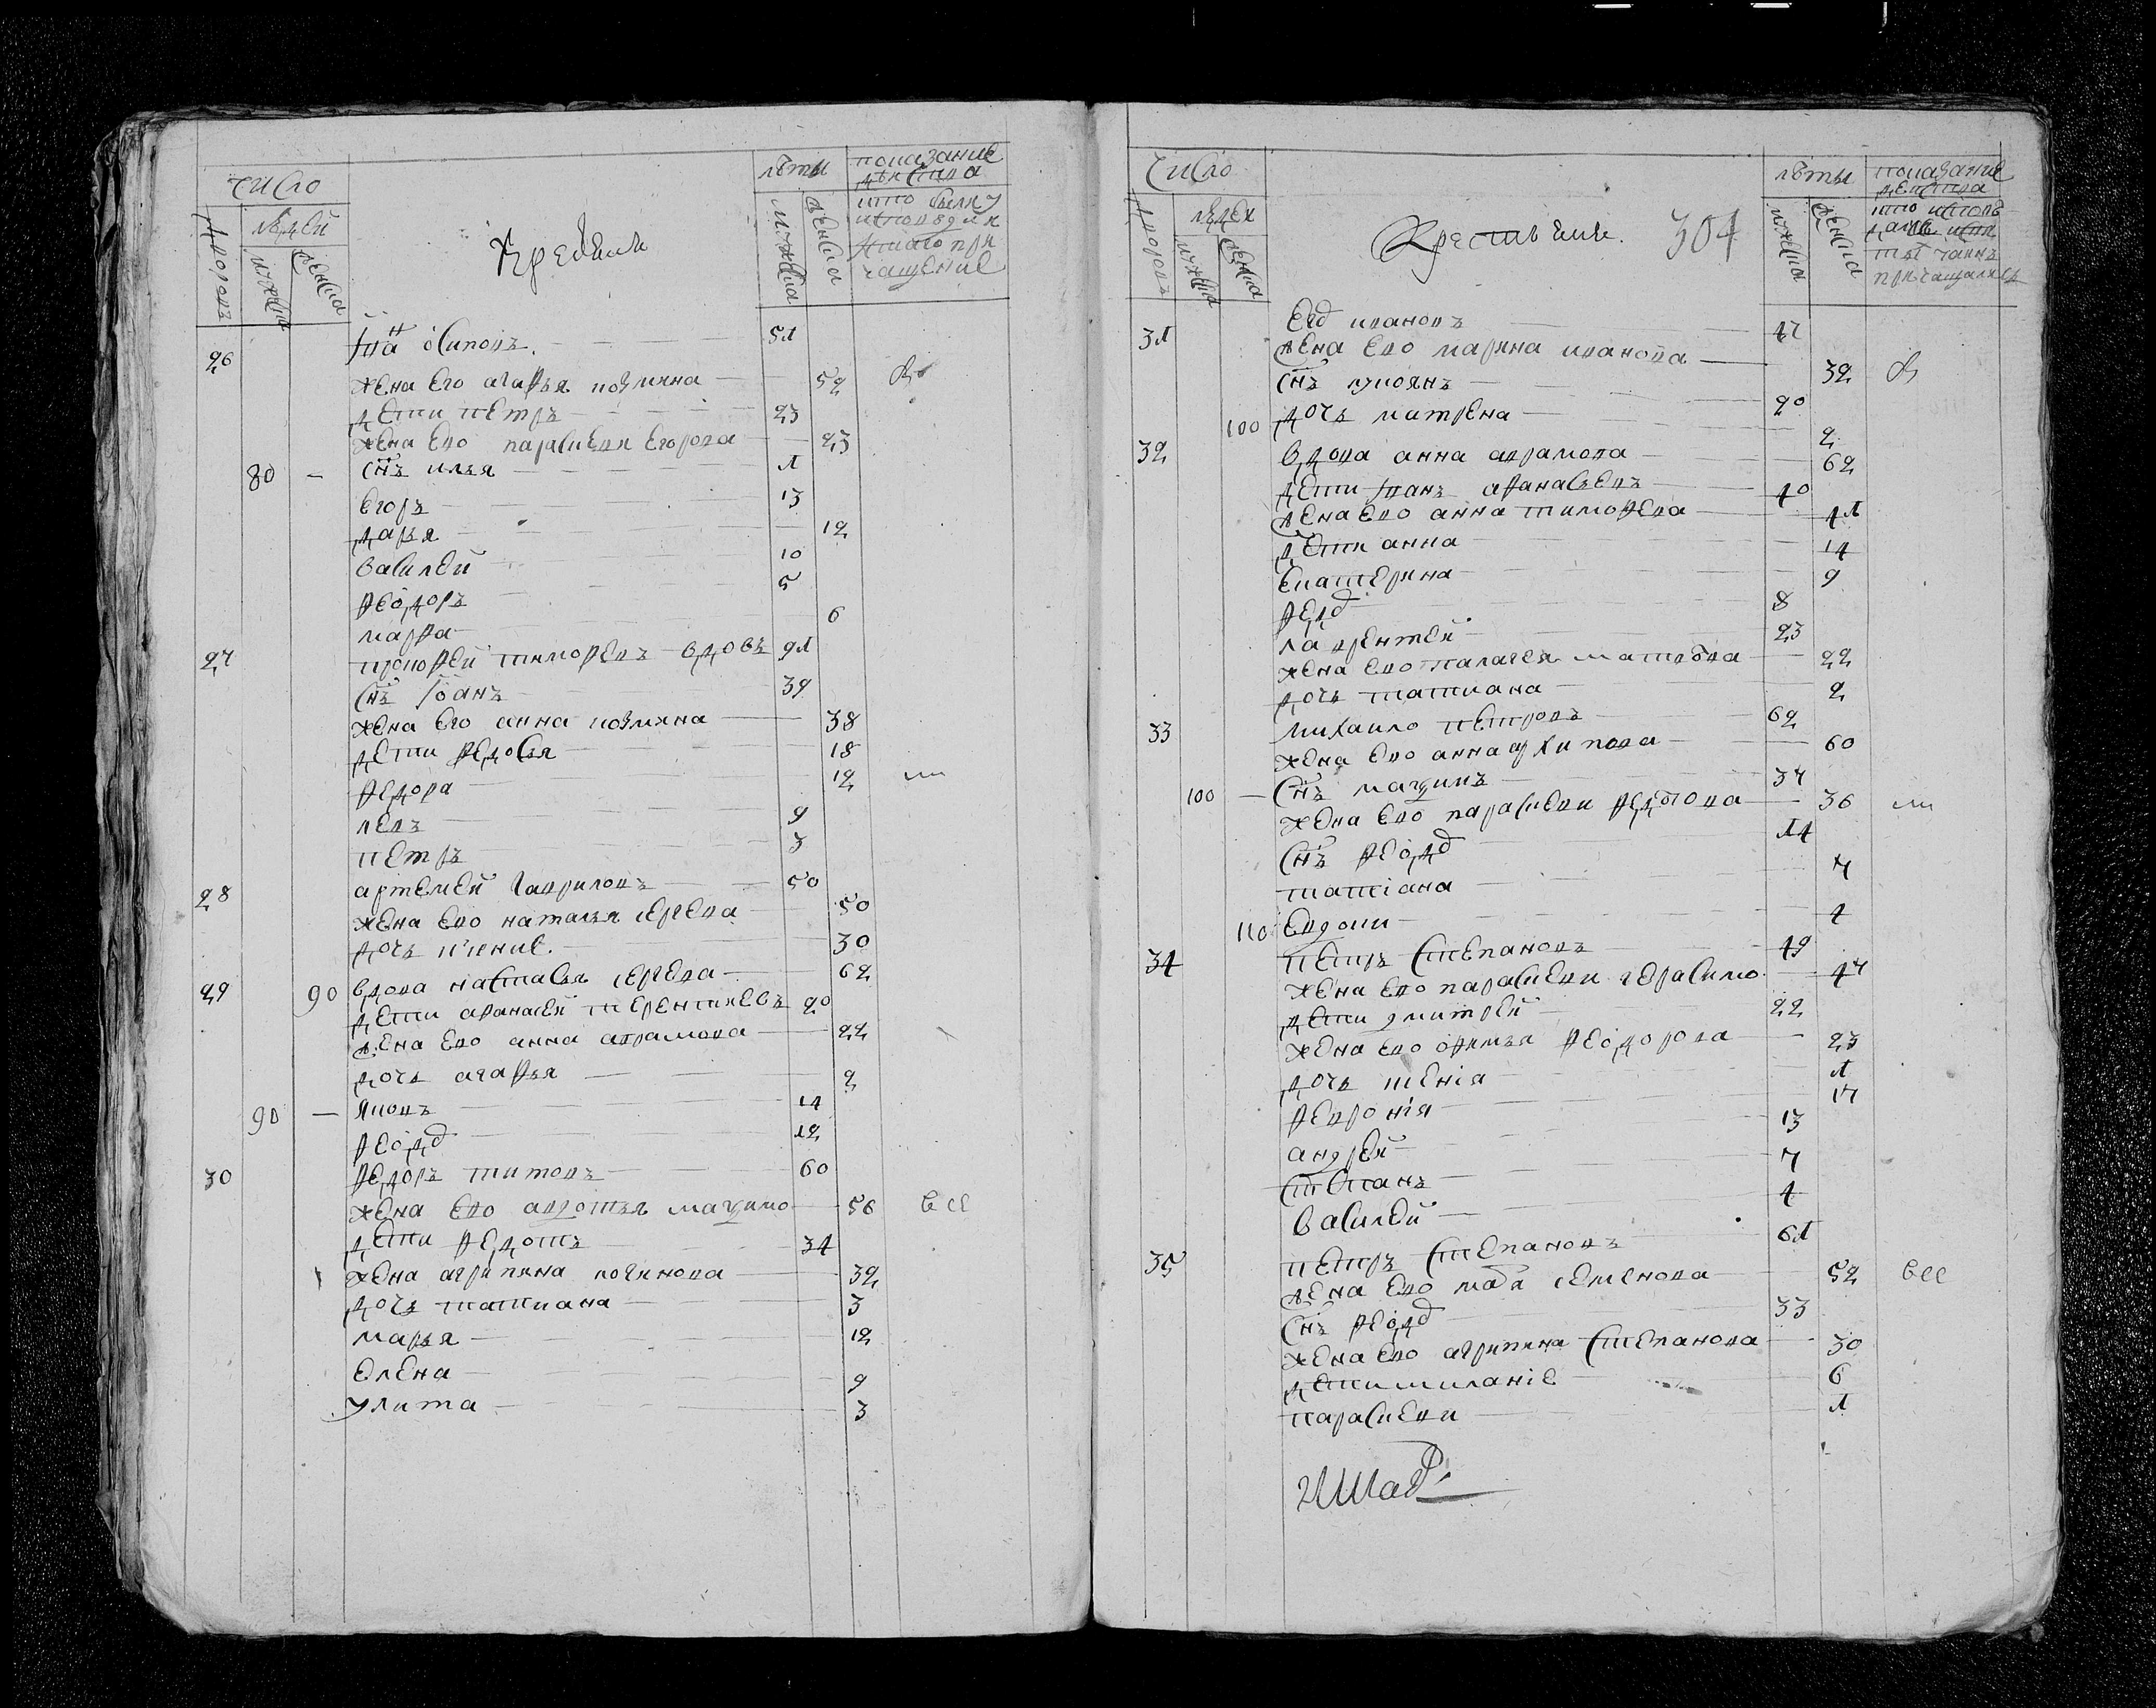 число
людей
дворовъ
мужеска
женска
крестьяне
лѣты
мужеска
женска
показание
действа
кто были у
исповеди и
святаго при
чащение
26 Іѡаⷩ осиповъ 51
жена его агафья козмина 52
дети петръ 23
жена ево параскевия егорова 23
80 сн҃ъ илья 1
егоръ 13
дарья 12
василей 10
феодоръ 5
марфа 6
27 прокофей тимофеевъ вдовъ 91
сн҃ъ іоанъ 39
жена его анна козмина 38
дети федосья 18
федора 12
левъ 9
петръ 3
28 артемей гавриловъ 50
жена ево наталья сергева 50
дочь ксение 30
29 90 вдова настасья сергева 62
дети афанасей терентиевъ 20
жена ево анна абрамова 22
дочь агафья 2
90 яковъ 14
феодоⷬ 12
30 федоръ титовъ 60
жена ево авдотья мазимо 56 все
дети федотъ 34
жена агрипина логинова 32
дочь татиана 3
марья 12
елена 9
улита 3
число
людей
дворовъ
мужеска
женска
крестьяне 304
лѣты
мужеска
женска
показание
действа
31 егоⷬ ивановъ 47
жена ево марина иванова 32
сн҃ъ лукоянъ 20
100 дочь матрена 2
32 вдова анна абрамова 62
дети іванъ афанасьевъ 40
жена ево анна тимофева 41
дети анна 14
екатерина 9
федоⷬ 8
лаврентей 23
жена ево палагея матвѣва 22
дочь татиана 2
33 михаило петровъ 62
жена ево анна архипова 60
100 сн҃ъ мазимъ 37
жена ево параскеви федотова 36
сн҃ъ феодоⷬ 14
татіана 7
110 евдоки 4
34 петръ степановъ 49
жена ево параскеви герасимо 47
дети дмитрей 22
жена ево офимья феодорова 23
дочь ксенія 1
февронія 17
андрей 13
степанъ 7
василей 4
35 петръ степановъ 61
жена ево маѳⷬя семенова 52 все
сн҃ъ феодоⷬ 33
жена ево агрипина степанова 30
дети миланіе 6
параскеви 1